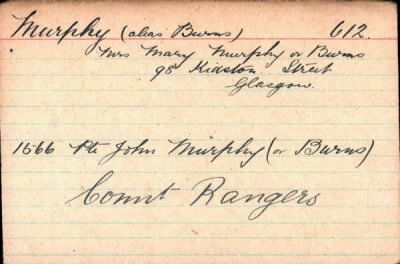 Murphy (alias Burns) 612.
Mrs Mary Murphy or Burns
98 Kidston Street
Glasgow.
1566 Pte John Murphy (or Burns)
Connt Rangers